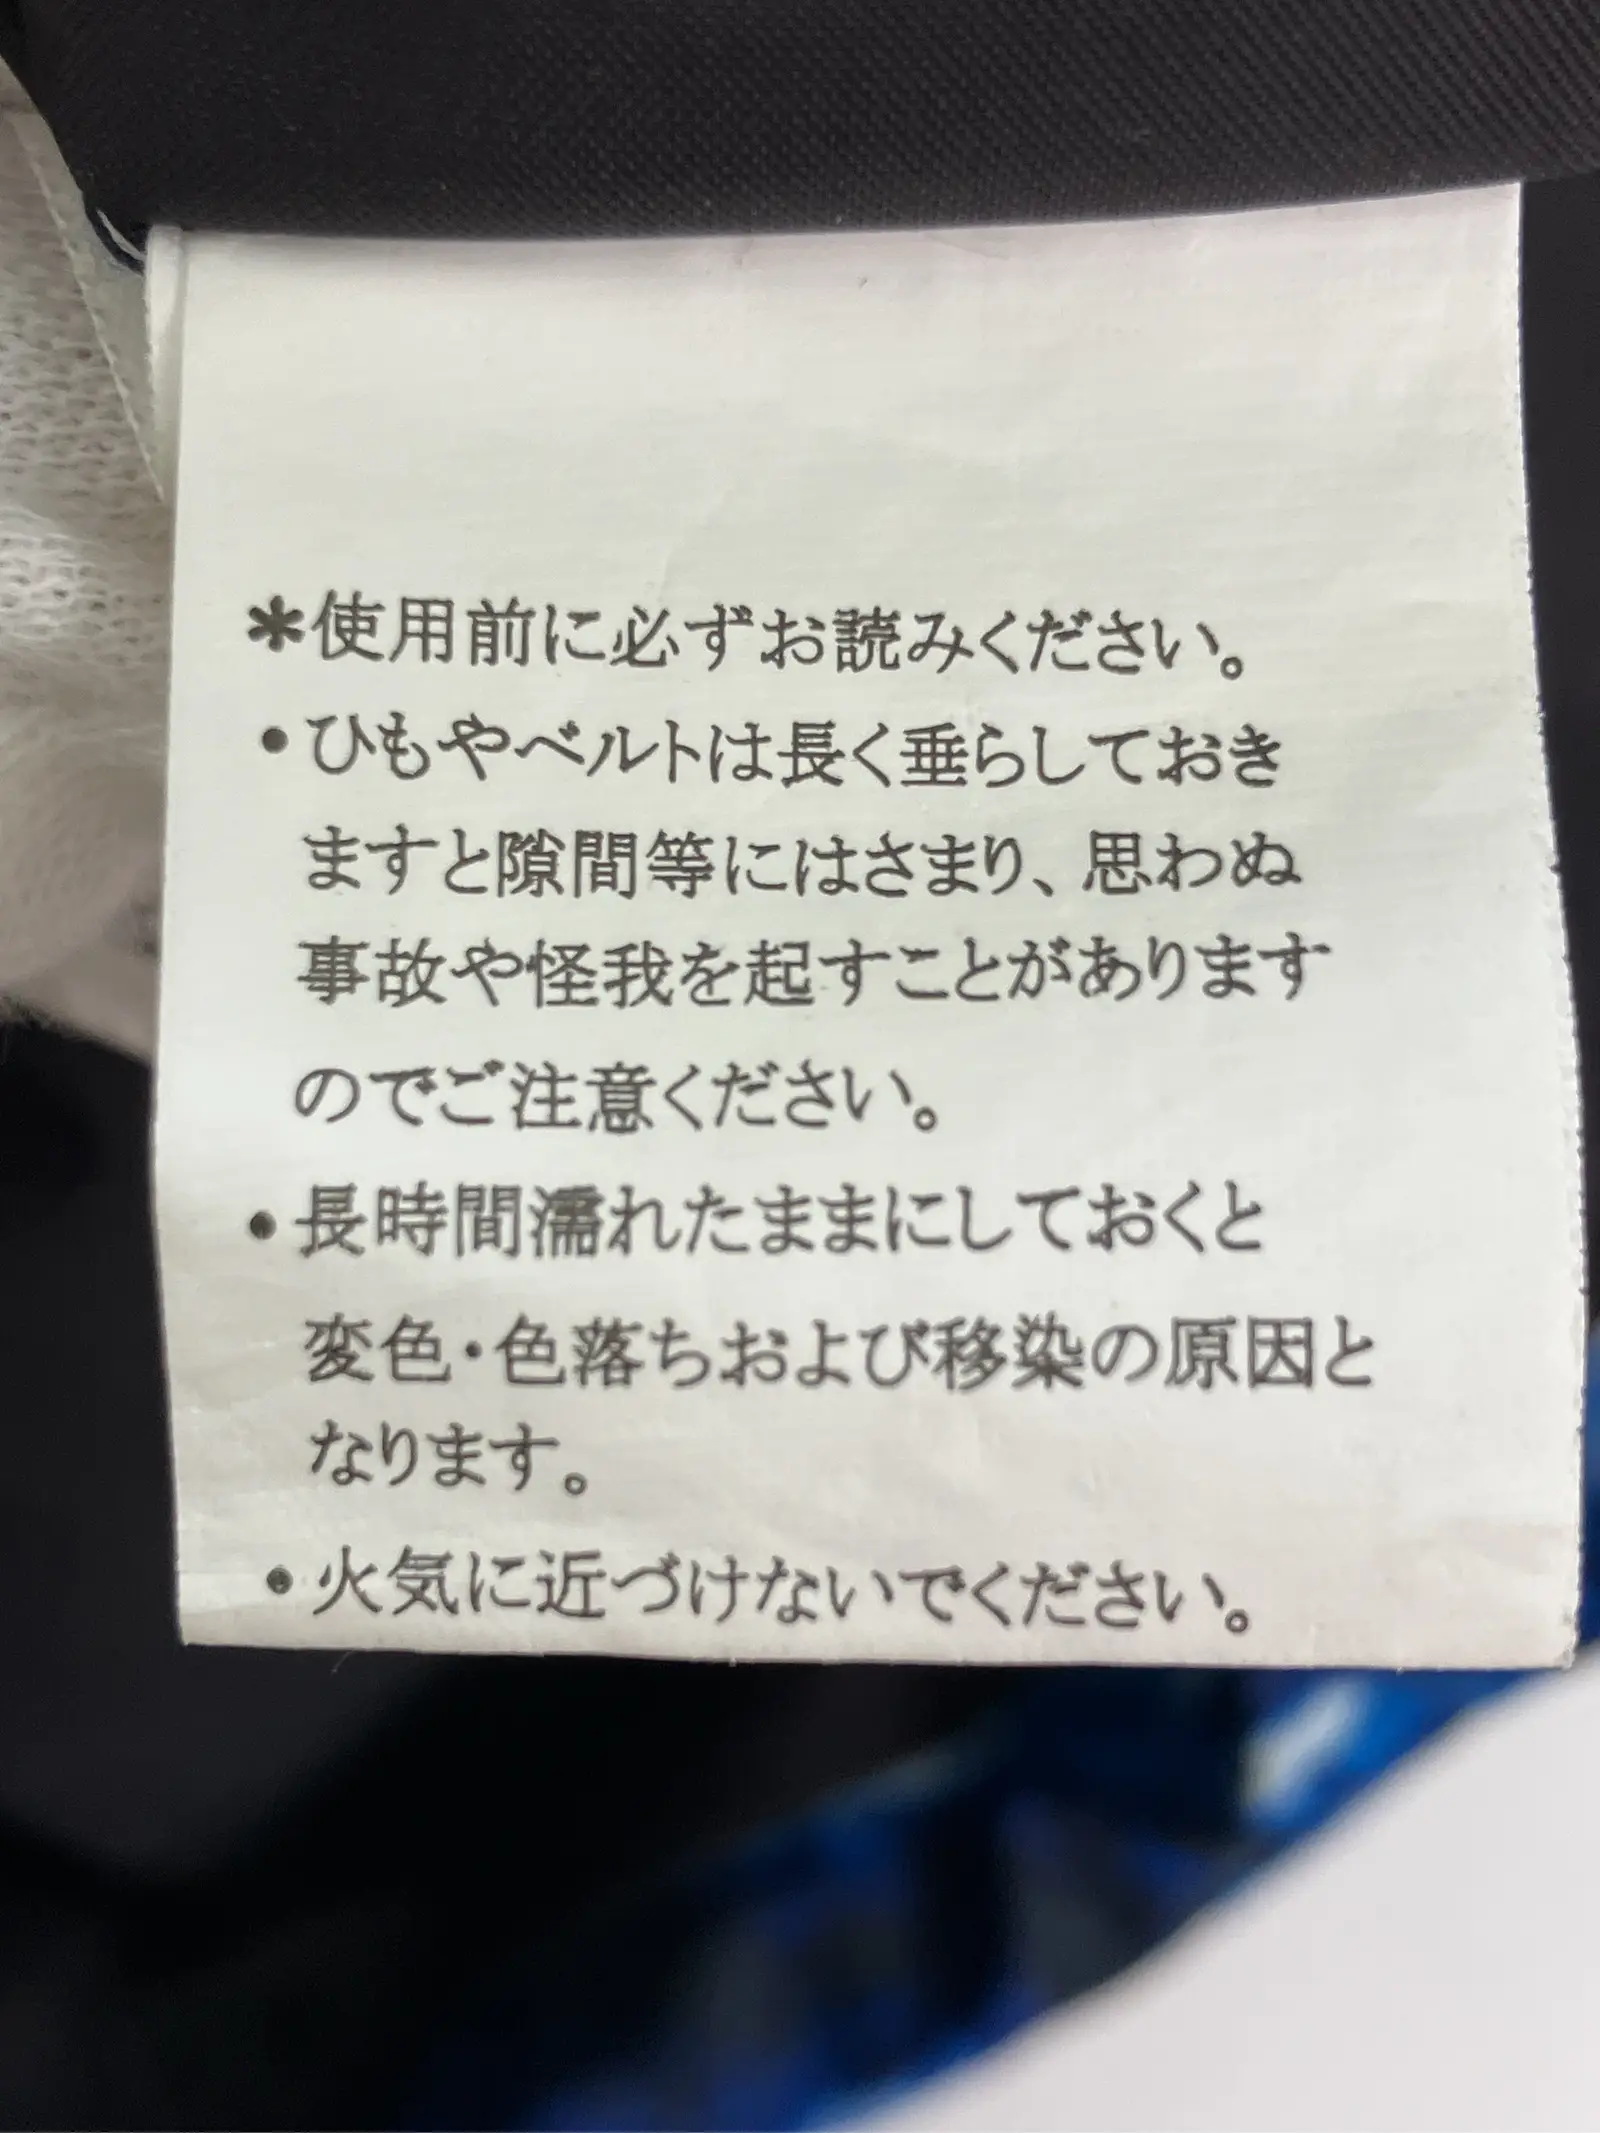 ＊使用前に必ずお読みください。
・ひもやベルトは長く垂らしておき
ますと隙間等にはさまり、思わぬ
事故や怪我を起すことがあります
のでご注意ください。
・長時間濡れたままにしておくと
変色・色落ちおよび移染の原因と
なります。
・火気に近づけないでください。